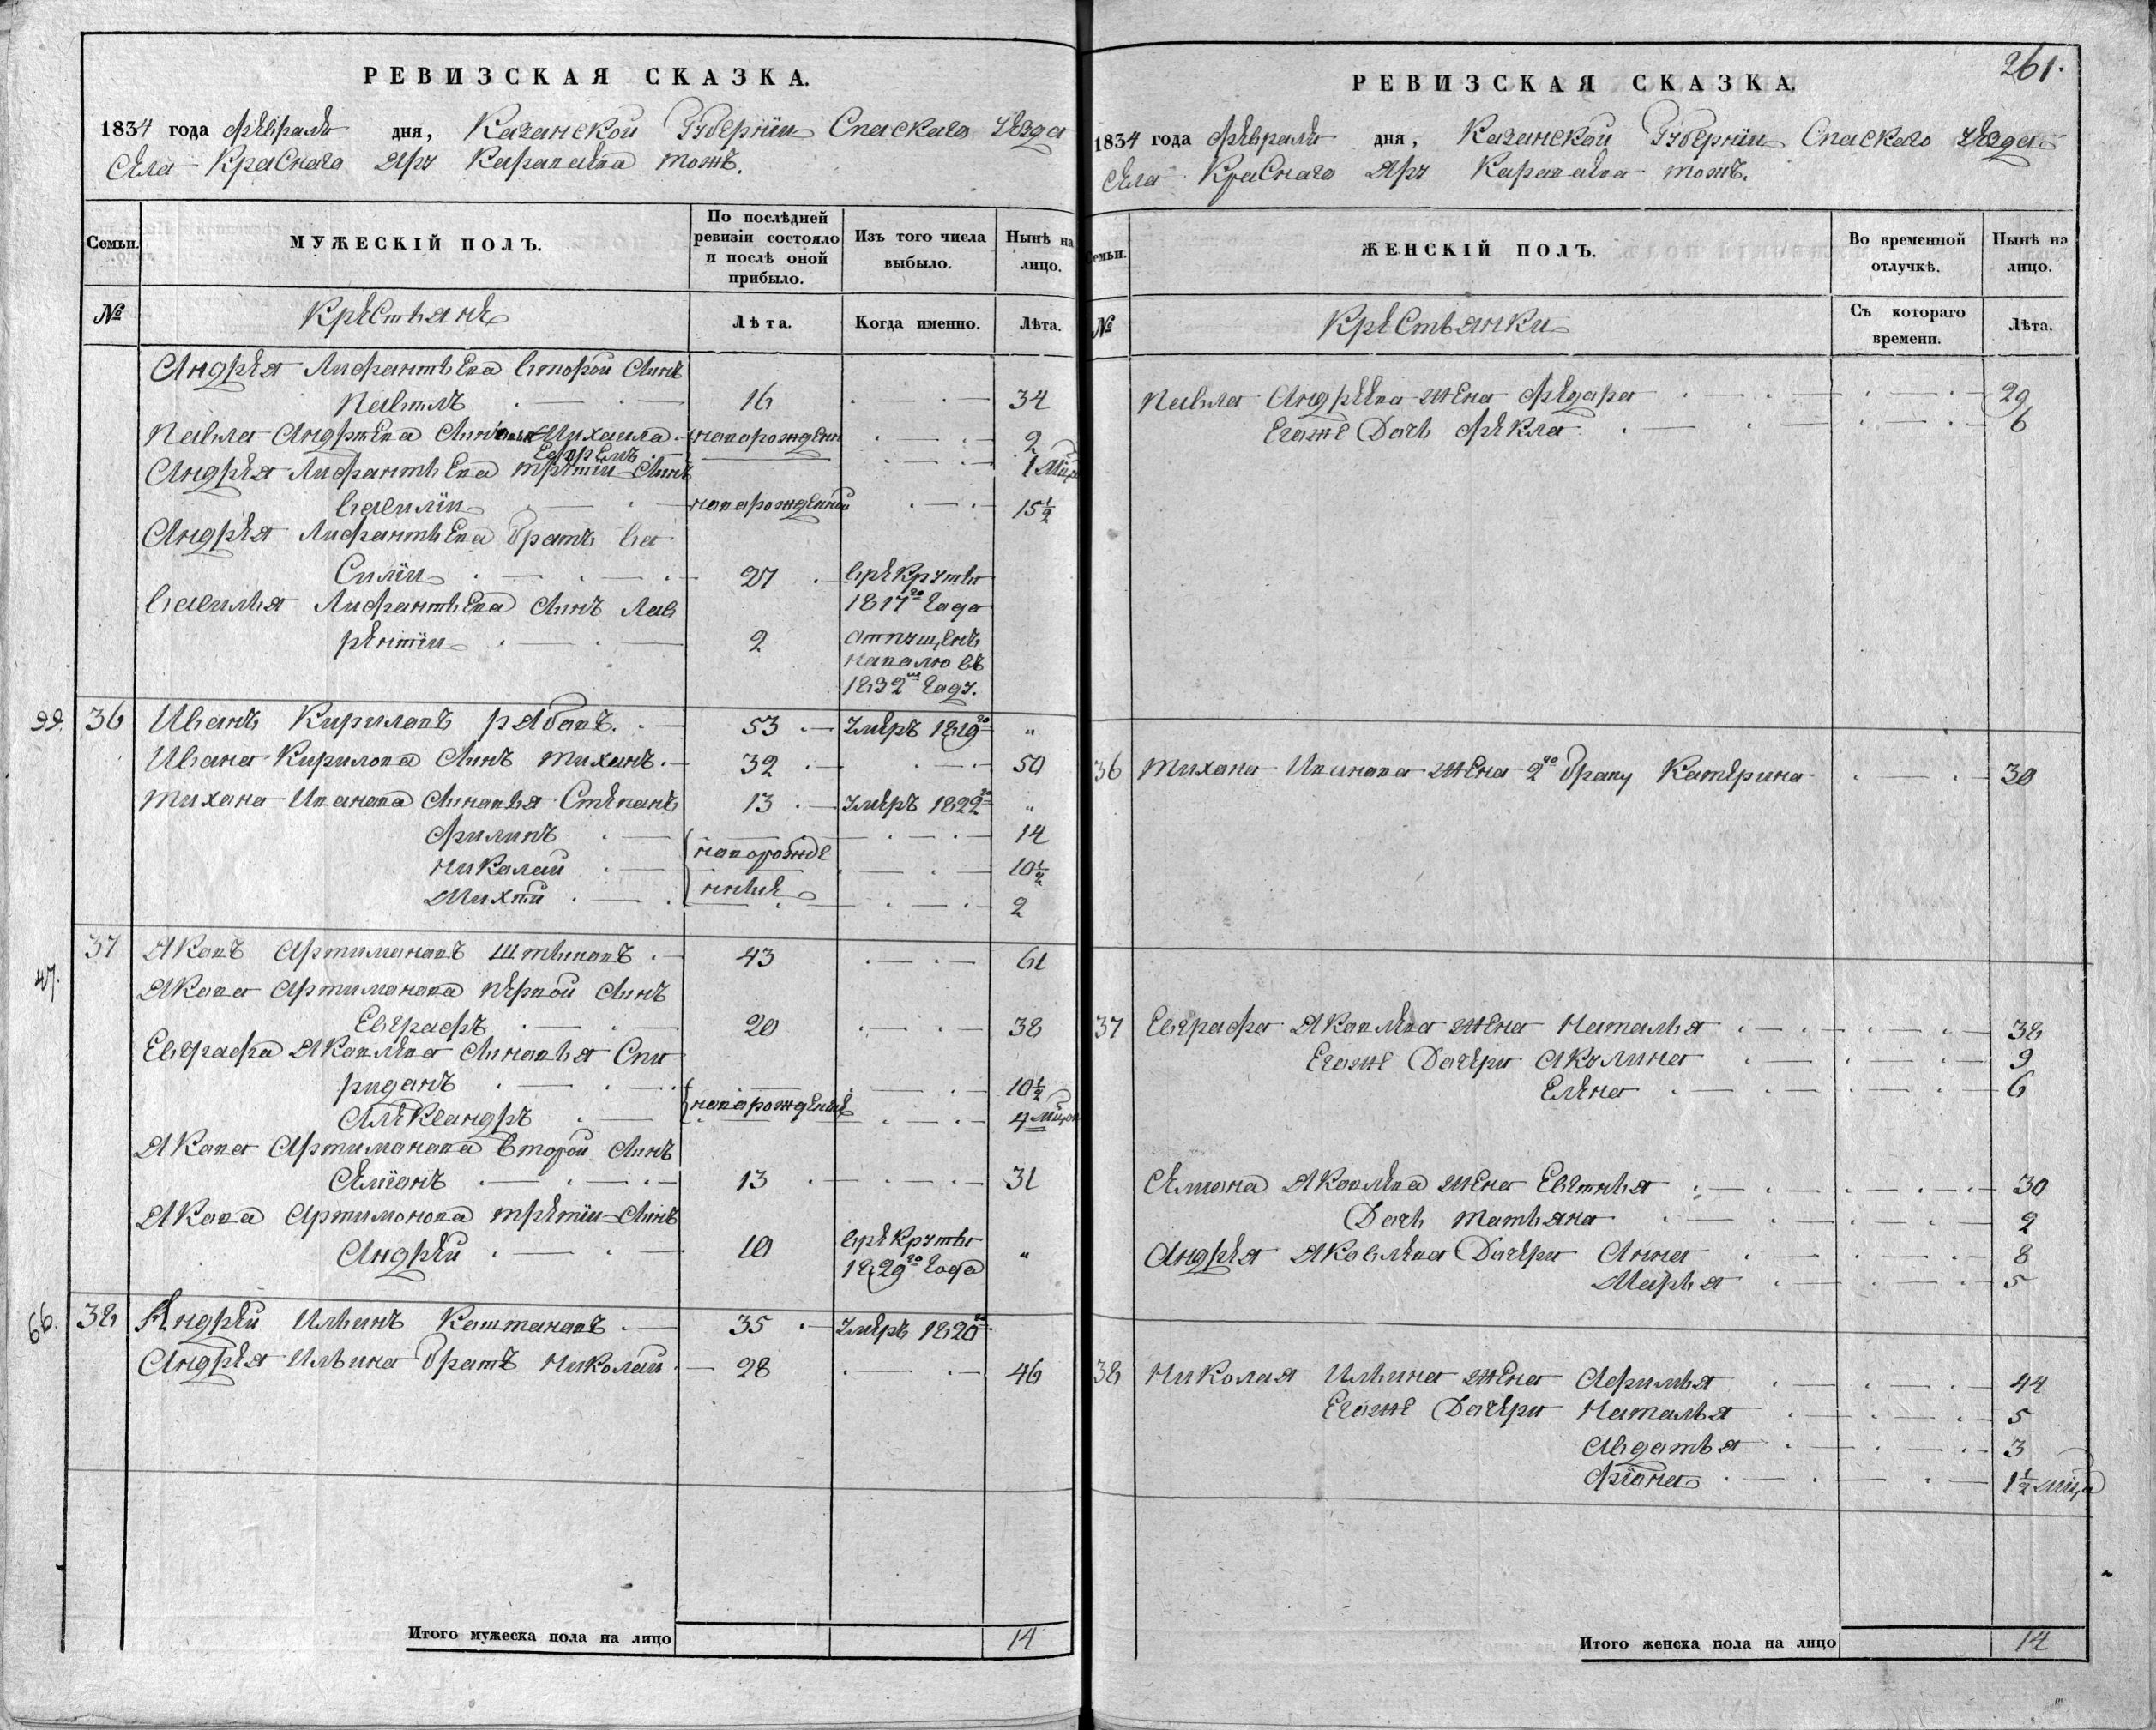 РЕВИЗСКАЯ СКАЗКА.
1834 года февраля дня, Казанской Губернии Спаскаго уезда
села Краснаго Яру Карапаева тожъ.
Семьи. МУЖЕСКІЙ ПОЛЪ. По послѣдней ревизіи состояло и послѣ оной прибыло. Изъ того числа выбыло. Нынѣ на лицо.
№ Крестьяне Лѣта. Когда именно. Лѣта.
Андрея Лифантьева второй Сынъ
Павелъ 16 34
Павла Андреева Михаила новорожденн 2
Ефремъ 1 мцъ
Андрея Лифантьева третiй Сынъ
Василiй новорожденной 15½
Андрея Лифантьева братъ Ва
Силiй 27 врекруты
1817го года
Василья Лифантьева Сынъ Лав
рентiй 2 отпущенъ
наволю въ
1832м году.
99. 36 Иванъ Кириловъ рябовъ. 53 умеръ 1819го "
Ивана Кирилова Сынъ тиханъ 32 50
тихана Иванова Сыновья Степанъ 13 умеръ 1822го "
филипъ 14
николай новорожде 10½
нные 2
37 Яковъ Артимоновъ 43 61
47. Якова Артимонова первой Сынъ
Евграфъ 20 38
Евграфа Яковлева Сыновья Спи
ридонъ 10½
Александръ новорожденые 4 мцов
Якова Артимонова второй Сынъ
Семiонъ 13 31
Якова Артимонова третiй Сынъ
Андрей 10 врекруты "
1829го года
66. 38 Андрей Ильинъ Каштановъ 35 умеръ 1820го
Андрея Ильина братъ Николай 28 46
Итого мужеска пола на лицо 14
261.
РЕВИЗСКАЯ СКАЗКА.
1834 года февраля дня, Казанской Губернии Спаскаго уезда
села Краснаго Яру Карапаева тожъ.
Семьи. ЖЕНСКІЙ ПОЛЪ. Во временной отлучкѣ. Нынѣ на лицо.
№ Крестьянки Съ котораго времени. Лѣта.
Павла Андреева жена федара 29
Егоже Дочь фекла 6
36 тихана Иванова жена 2го браку Катерина 30
37 Евграфа Яковлева жена Наталья 38
Егоже Дочери Акулина 9
Елена 6
Семиона Яковлева жена 30
Дочь татьяна 2
Андрея Яковлева Дочери Анна 8
Марья 5
38 Николая Ильина жена Афимья 44
Егоже Дочери Наталья 5
Авдотья 3
фiона 1½ мца
Итого женска пола на лицо 14